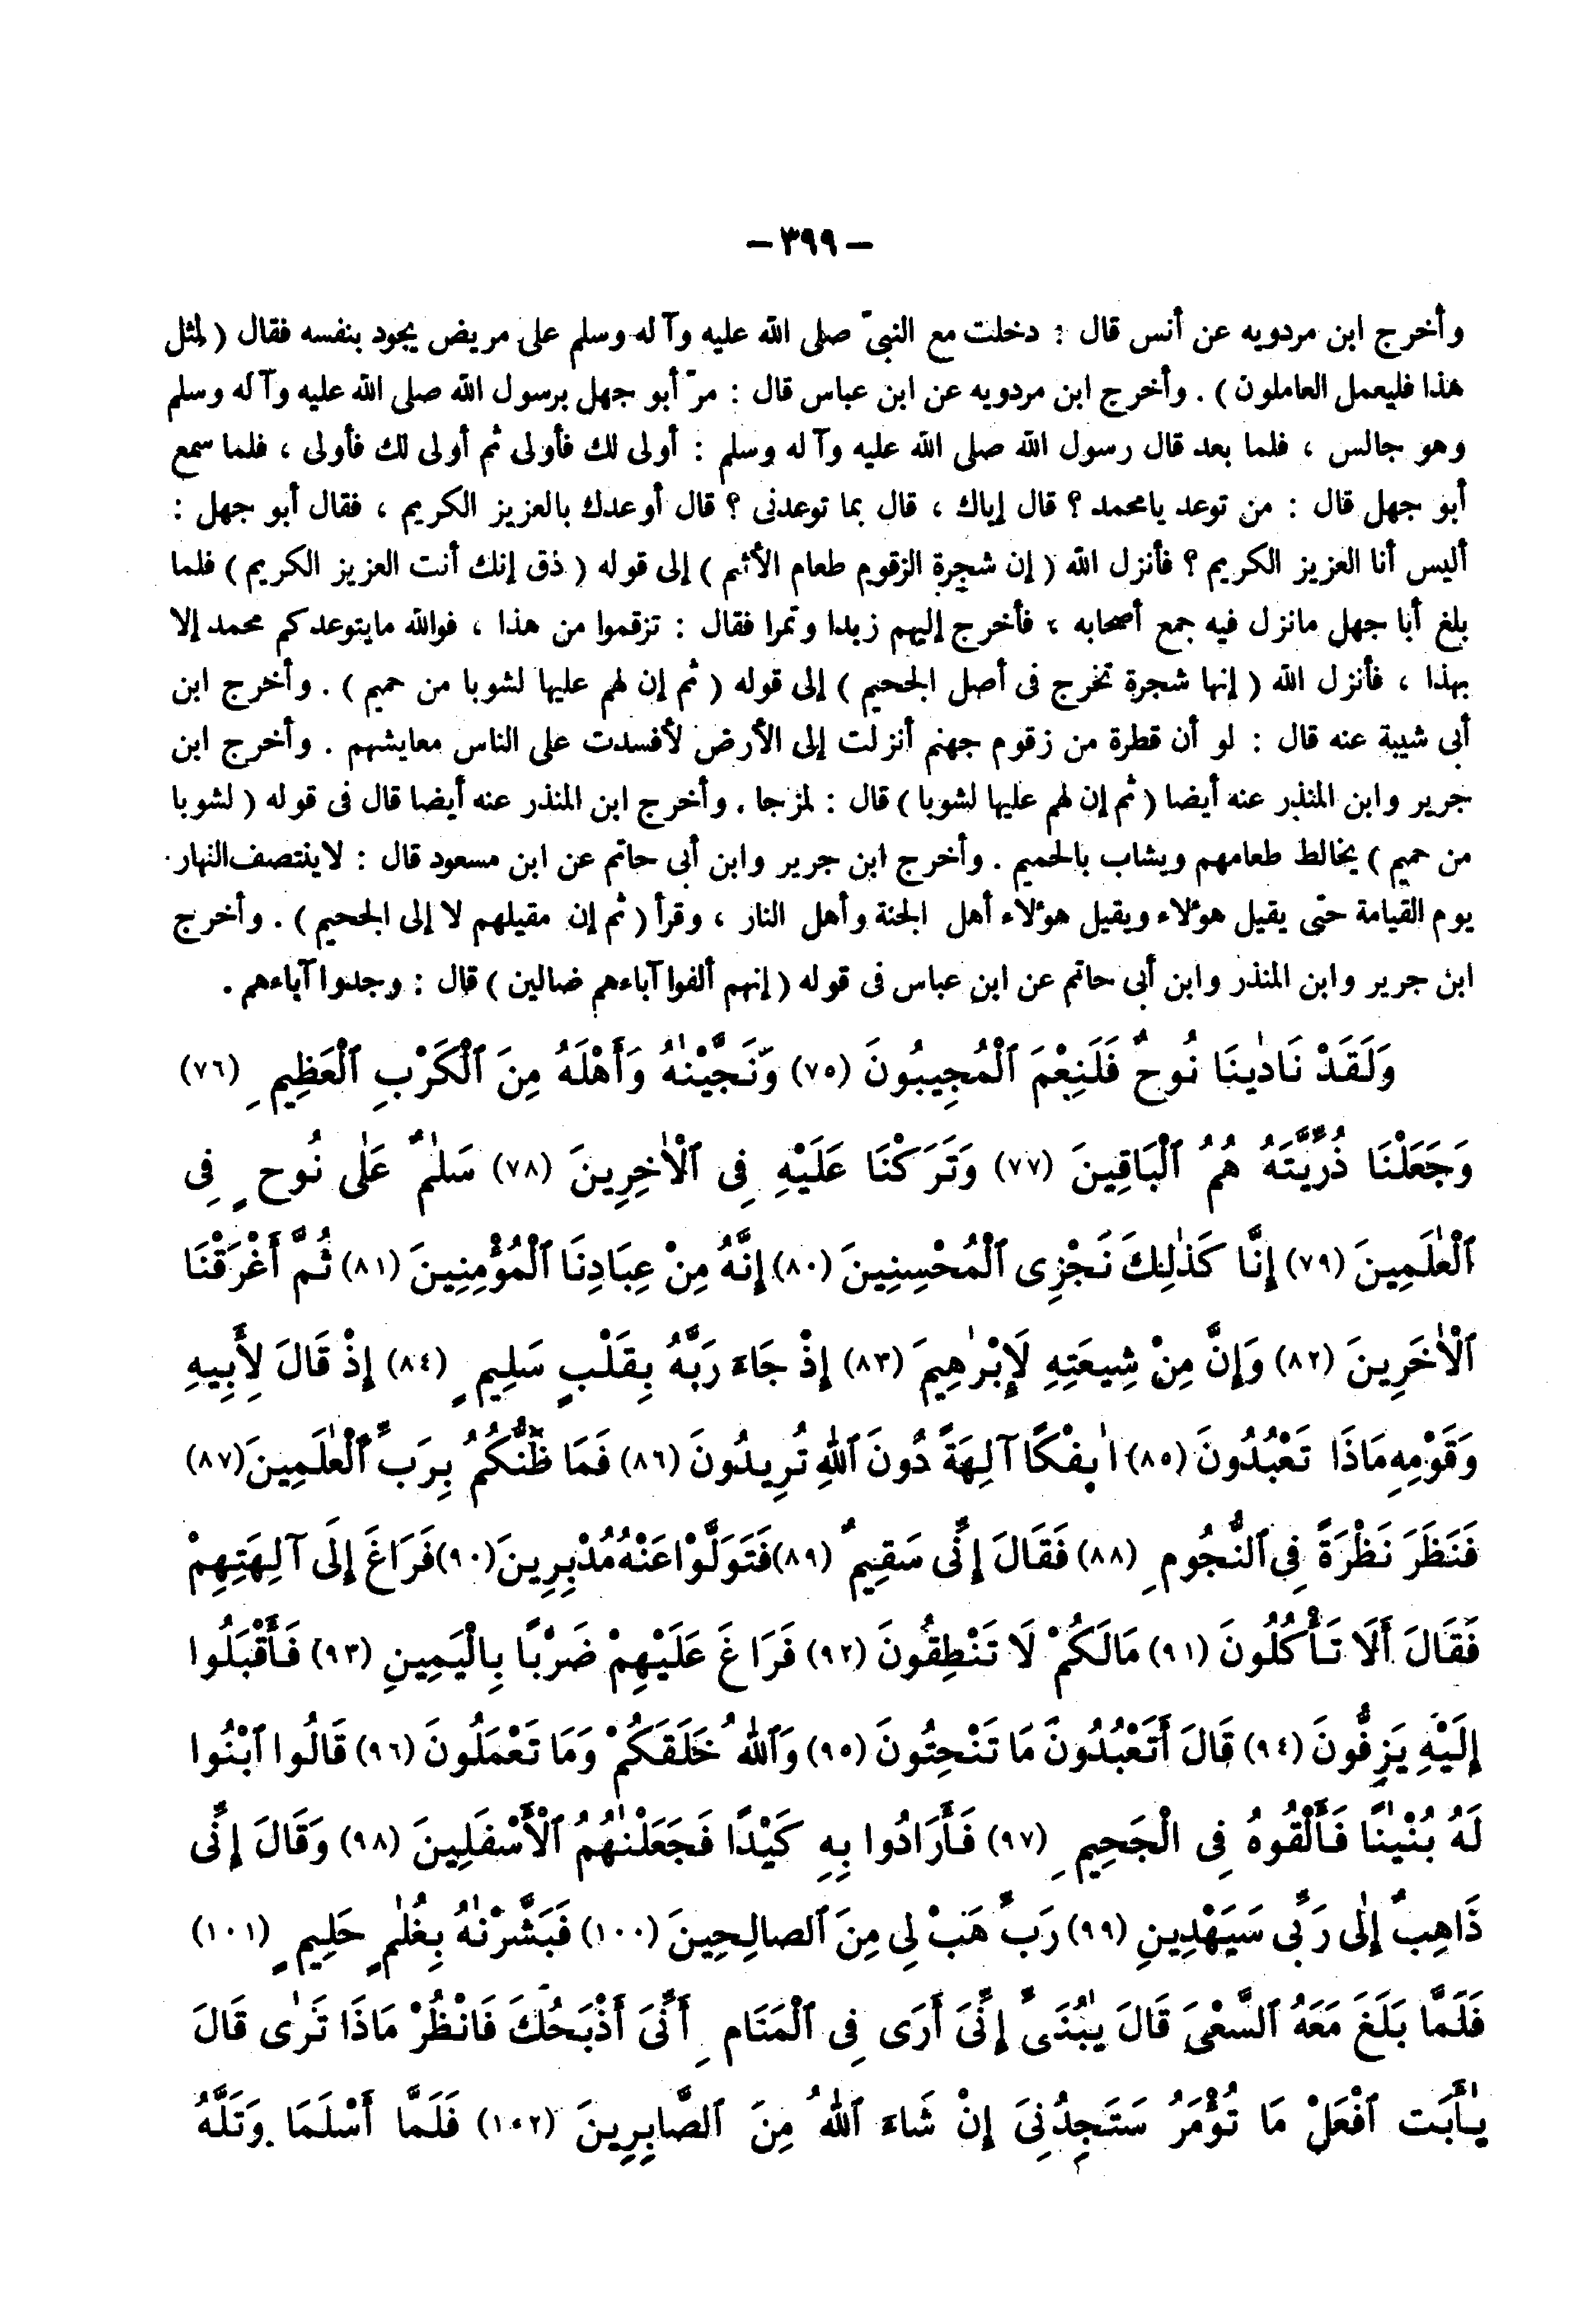 — ٣٩٩ —
وأخرج ابن مردويه عن أنس قال : دخلت مع النبيّ صلى الله عليه وآله وسلم على مريض يجود بنفسه فقال ( لمثل
هذا فليعمل العاملون ) . وأخرج ابن مردويه عن ابن عباس قال : مرّ أبو جهل برسول الله صلى الله عليه وآله وسلم
وهو جالس ، فلما بعد قال رسول الله صلى الله عليه وآله وسلم : أولى لك فأولى ثم أولى لك فأولى ، فلما سمع
أبو جهل قال : من توعد يامحمد ؟ قال إياك ، قال بما توعدنى ؟ قال أوعدك بالعزيز الكريم ، فقال أبو جهل :
أليس أنا العزيز الكريم ؟ فأنزل الله ( إن شجرة الزقوم طعام الأثيم ) إلى قوله ( ذق إنك أنت العزيز الكريم ) فلما
بلغ أبا جهل مانزل فيه جمع أصحابه ، فأخرج إليهم زبدا وتمرا فقال : تزقموا من هذا ، فوالله مايتوعدكم محمد إلا
بهذا ، فأنزل الله ( إنها شجرة تخرج فى أصل الجحيم ) إلى قوله ( ثم إن لهم عليها لشوبا من حميم ) . وأخرج ابن
أبى شيبة عنه قال : لو أن قطرة من زقوم جهنم أنزلت إلى الأرض لأفسدت على الناس معايشهم . وأخرج ابن
جرير وابن المنذر عنه أيضا ( ثم إن لهم عليها لشوبا ) قال : لمزجا . وأخرج ابن المنذر عنه أيضا قال فى قوله ( لشوبا
من حميم ) يخالط طعامهم ويشاب بالحميم . وأخرج ابن جرير وابن أبى حاتم عن ابن مسعود قال : لاينتصف النهار
يوم القيامة حتى يقيل هؤلاء ويقيل هؤلاء أهل الجنة وأهل النار ، وقرأ ( ثم إن مقيلهم لا إلى الجحيم ) . وأخرج
ابن جرير وابن المنذر وابن أبى حاتم عن ابن عباس فى قوله ( إنهم ألفوا آباءهم ضالين ) قال : وجدوا آباءهم .
وَلَقَدْ نَادٰينَا نُوحٌ فَلَنِعْمَ ٱلْمُجِيبُونَ (٧٥) وَنَجَّيْنٰهُ وَأَهْلَهُ مِنَ ٱلْكَرْبِ ٱلْعَظِيمِ (٧٦)
وَجَعَلْنَا ذُرِّيَّتَهُ هُمُ ٱلْبَاقِينَ (٧٧) وَتَرَكْنَا عَلَيْهِ فِى ٱلْأٰخِرِينَ (٧٨) سَلٰمٌ عَلٰى نُوحٍ فِى
ٱلْعٰلَمِينَ (٧٩) إِنَّا كَذٰلِكَ نَجْزِى ٱلْمُحْسِنِينَ (٨٠) إِنَّهُ مِنْ عِبَادِنَا ٱلْمُؤْمِنِينَ (٨١) ثُمَّ أَغْرَقْنَا
ٱلْأٰخَرِينَ (٨٢) وَإِنَّ مِنْ شِيعَتِهِ لَإِبْرٰهِيمَ (٨٣) إِذْ جَاءَ رَبَّهُ بِقَلْبٍ سَلِيمٍ (٨٤) إِذْ قَالَ لِأَبِيهِ
وَقَوْمِهِ مَاذَا تَعْبُدُونَ (٨٥) اٰئِفْكًا آلِهَةً دُونَ ٱللهِ تُرِيدُونَ (٨٦) فَمَا ظَنُّكُمْ بِرَبِّ ٱلْعٰلَمِينَ (٨٧)
فَنَظَرَ نَظْرَةً فِى ٱلنُّجُومِ (٨٨) فَقَالَ إِنِّى سَقِيمٌ (٨٩) فَتَوَلَّوْا عَنْهُ مُدْبِرِينَ (٩٠) فَرَاغَ إِلَى آلِهَتِهِمْ
فَقَالَ أَلَا تَأْكُلُونَ (٩١) مَالَكُمْ لَا تَنْطِقُونَ (٩٢) فَرَاغَ عَلَيْهِمْ ضَرْبًا بِالْيَمِينِ (٩٣) فَأَقْبَلُوا
إِلَيْهِ يَزِفُّونَ (٩٤) قَالَ أَتَعْبُدُونَ مَا تَنْحِتُونَ (٩٥) وَٱللهُ خَلَقَكُمْ وَمَا تَعْمَلُونَ (٩٦) قَالُوا ٱبْنُوا
لَهُ بُنْيٰنًا فَأَلْقُوهُ فِى الْجَحِيمِ (٩٧) فَأَرَادُوا بِهِ كَيْدًا فَجَعَلْنٰهُمُ ٱلْأَسْفَلِينَ (٩٨) وَقَالَ إِنِّى
ذَاهِبٌ إِلٰى رَبِّى سَيَهْدِينِ (٩٩) رَبِّ هَبْ لِى مِنَ ٱلصالِحِينَ (١٠٠) فَبَشَّرْنٰهُ بِغُلٰمٍ حَلِيمٍ (١٠١)
فَلَمَّا بَلَغَ مَعَهُ ٱلسَّعْىَ قَالَ يٰبُنَىَّ إِنِّىَ أَرَى فِى ٱلْمَنَامِ أَنِّىَ أَذْبَحُكَ فَانْظُرْ مَاذَا تَرٰى قَالَ
يٰأَبَتِ ٱفْعَلْ مَا تُؤْمَرُ سَتَجِدُنِىَ إِنْ شَاءَ ٱللهُ مِنَ ٱلصَّابِرِينَ (١٠٢) فَلَمَّا أَسْلَمَا وَتَلَّهُ